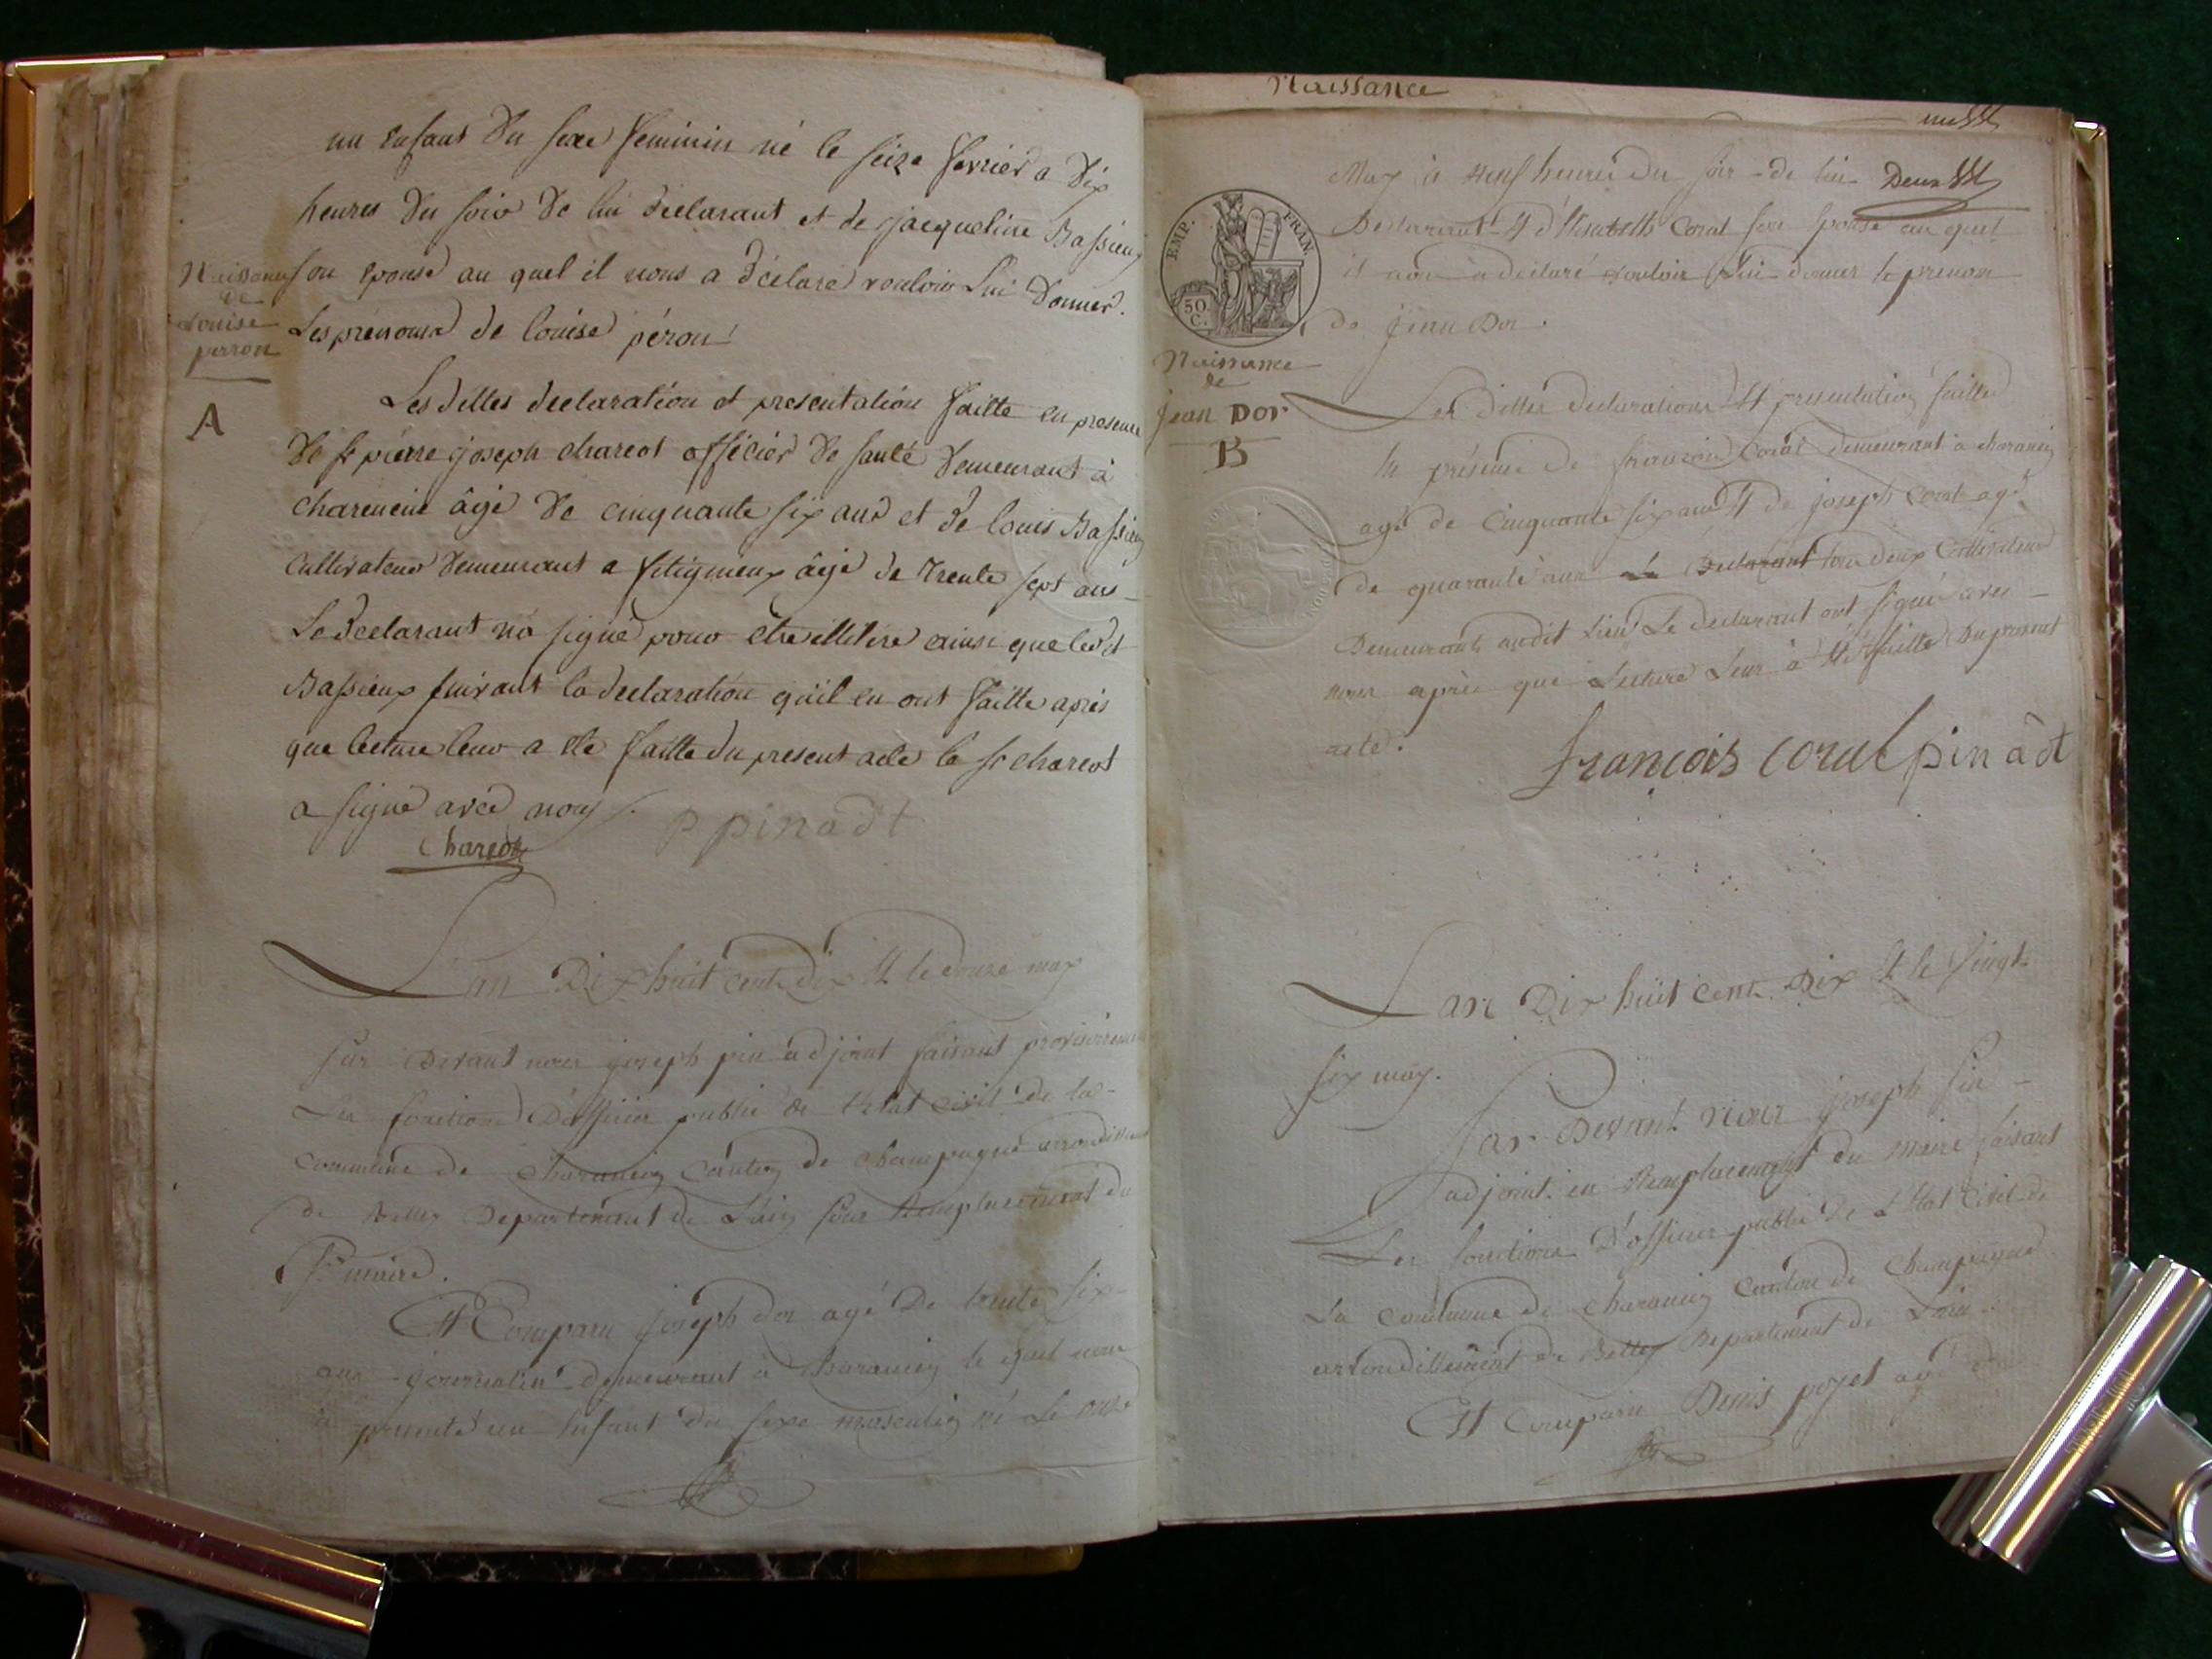 un enfant du sexe feminin né le seize fevrier a dix
heures du soir de lui declarant et de jacqueline Bassieux
son epouse au quel il nous a déclaré vouloir lui donner
Les prenoms de louise péron
Naissance
de
Louise
perron
A
Les dittes declaration et presentation faitte en presence
de sr pierre joseph charcot officier de santé demeurant à
charencin âgé de cinquante six ans et de louis Bassieux
cultivateur demeurant a fitignieux âgé de trente sept ans
Le declarant n'a signé pour etre illitire ainsi que led't
Bassieux suivant la declaration quil en ont faitte apres
que lecture leur a ete faitte du present acte le sr charcot
a signé avec nous
Charcot
p pin adt
L'an Dix huit cent dix et le douze may
par Devant nous joseph pin adjoint faisant provisoirement
Les fonctions D'officier public de l'Etat civil de la
commune de charancin canton de champagne arrondissement
de Belley Departement de L'ain pour Remplacement du
Sr maire.
Est Comparu joseph Dor agé De trente six
ans journalier demeurant à charancin le quel nous
à presenté un Enfant du sexe masculin né Le onze
Naissance
Deux
May à neuf heures du soir de lui
Declarant Et d'Elisabeth Coral son Epouse au quel
il nous à declaré vouloir Lui donner le prenom
de Jean Dor.
EMP. FRAN.
50 C.
Naissance
de
jean Dor
B
Les dittes declarations Et presentation faittes
En présence de françois Coral demeurant à charancin
agé de Cinquante six ans Et de joseph Coral agé
de quarante ans Declarant tous deux Cultivateurs
Demeurants audit Lieu Le declarant ont signé avec
nous après que Lecture Leur à Eté faitte Du present
acte.
françois coral pin adt
L'an Dix huit Cent Dix Et le Vingt
six may.
Par Devant nous joseph pin
adjoint en Remplacement du maire faisant
Les fonctions D'officier public De L'Etat Civil de
La commune de charancin Canton de Champagne
arrondissement de Belley Departement de L'ain
Est Comparu Denis poyet agé de